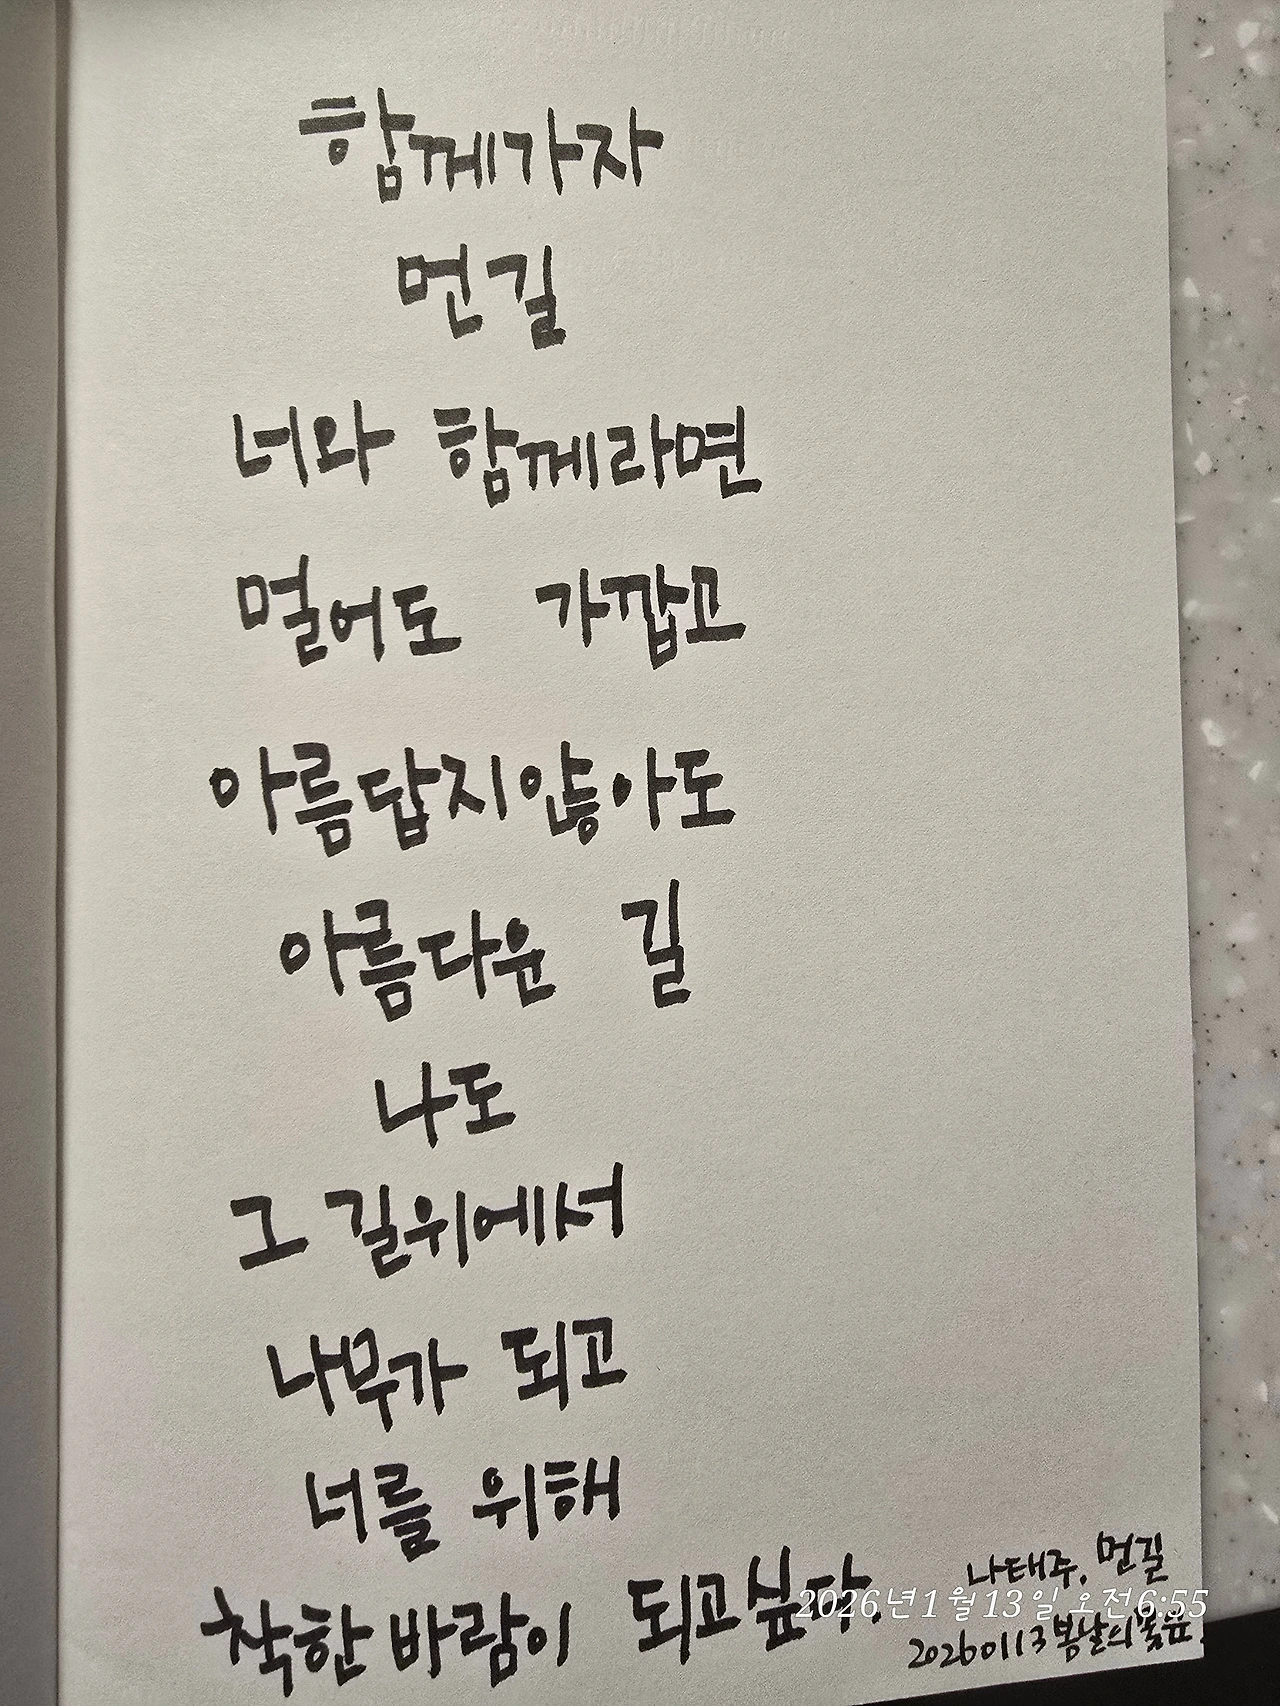 함께가자
먼길
너와 함께라면
멀어도 가깝고
아름답지않아도
아름다운 길
나도
그 길위에서
나무가 되고
너를 위해
착한 바람이 되고싶다.
나태주. 먼길
2026년 1월 13일 오전 6:55
20260113 봄날의